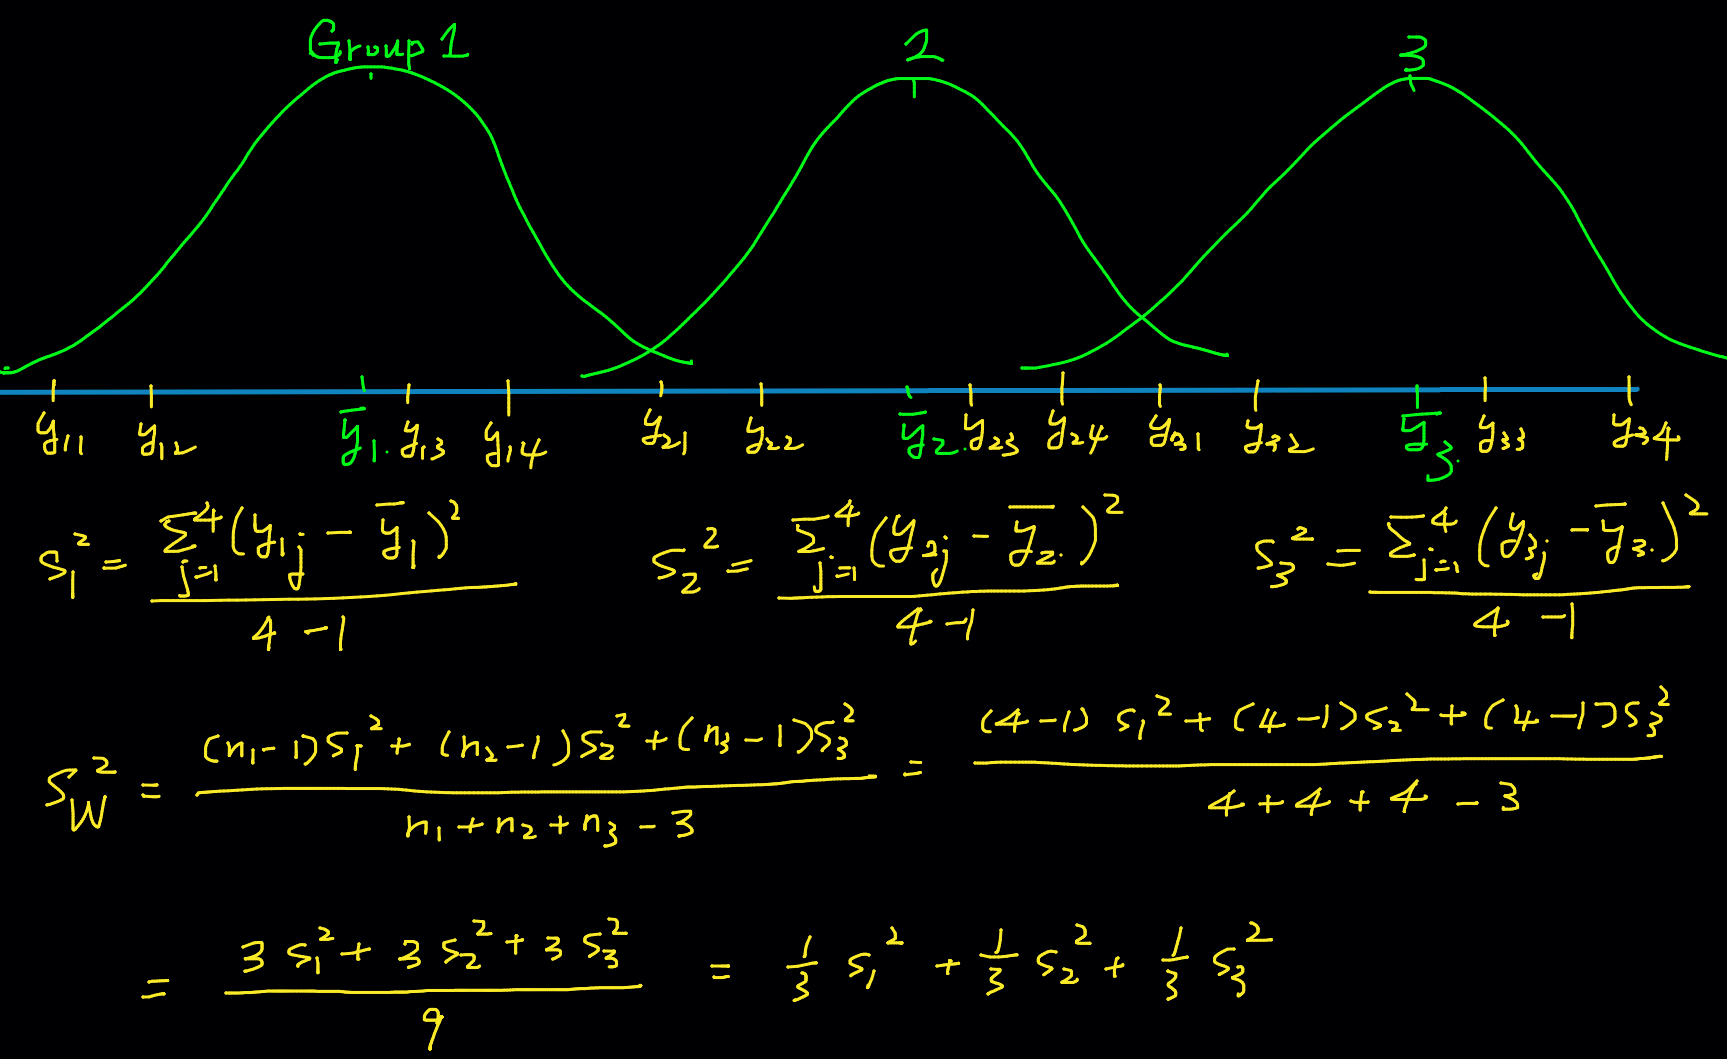 Group 1 2 3
y₁₁ y₁₂ ȳ₁. y₁₃ y₁₄ y₂₁ y₂₂ ȳ₂. y₂₃ y₂₄ y₃₁ y₃₂ ȳ₃. y₃₃ y₃₄
s₁² = Σ⁴ⱼ₌₁(y₁ⱼ − ȳ₁)² / (4 − 1) s₂² = Σ⁴ⱼ₌₁(y₂ⱼ − ȳ₂.)² / (4 − 1) s₃² = Σ⁴ⱼ₌₁(y₃ⱼ − ȳ₃.)² / (4 − 1)
s_W² = ((n₁ − 1)s₁² + (n₂ − 1)s₂² + (n₃ − 1)s₃²) / (n₁ + n₂ + n₃ − 3) = ((4 − 1) s₁² + (4 − 1)s₂² + (4 − 1)s₃²) / (4 + 4 + 4 − 3)
= (3 s₁² + 3 s₂² + 3 s₃²) / 9 = 1/3 s₁² + 1/3 s₂² + 1/3 s₃²